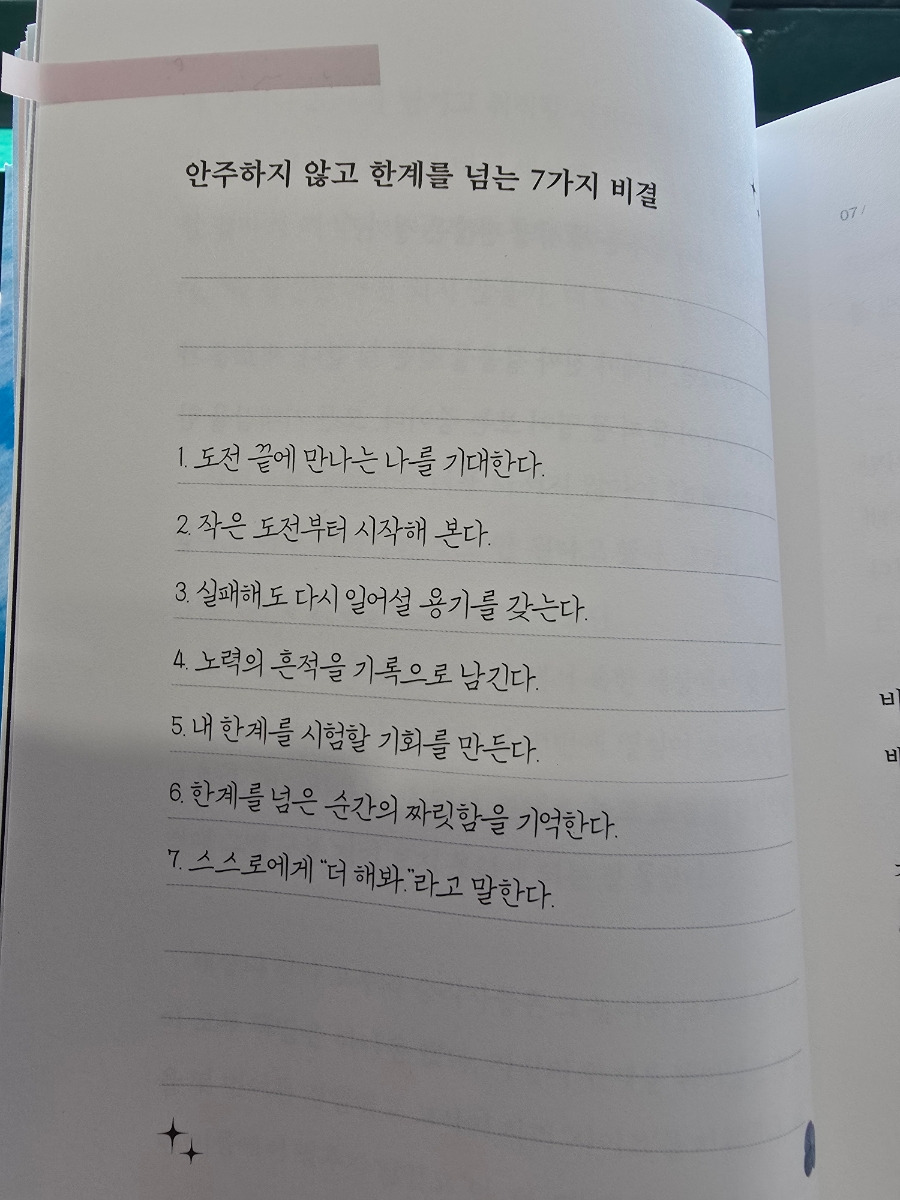 안주하지 않고 한계를 넘는 7가지 비결
1. 도전 끝에 만나는 나를 기대한다.
2. 작은 도전부터 시작해 본다.
3. 실패해도 다시 일어설 용기를 갖는다.
4. 노력의 흔적을 기록으로 남긴다.
5. 내 한계를 시험할 기회를 만든다.
6. 한계를 넘은 순간의 짜릿함을 기억한다.
7. 스스로에게 "더 해봐."라고 말한다.
07